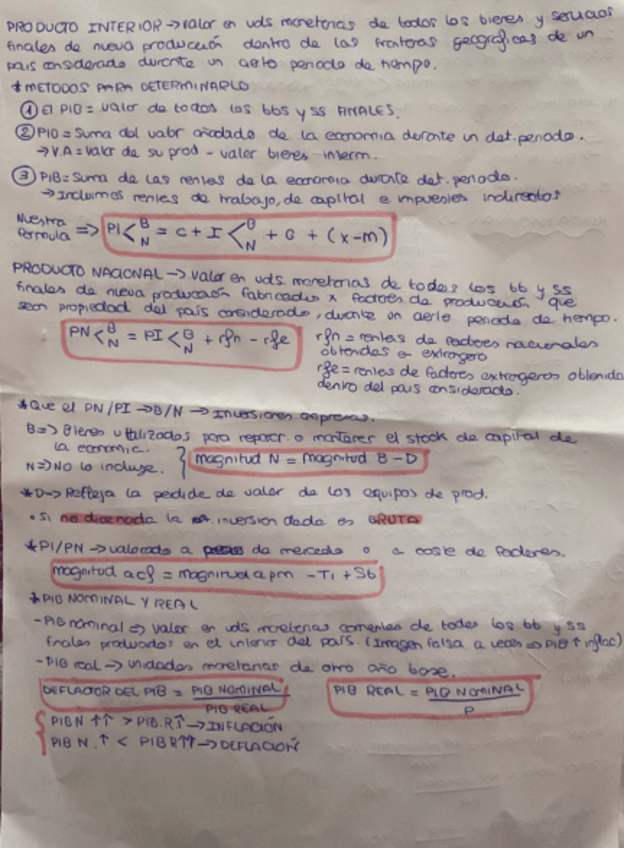 PRODUCTO INTERIOR → valor en uds monetarias de todos los bienes y servicios
finales de nueva producción dentro de las fronteras geográficas de un
país considerado durante un cierto periodo de tiempo.
* METODOS PARA DETERMINARLO
① El PIB = valor de todos los bbs y ss FINALES.
② PIB = Suma del valor añadado de la economia durante un det. periodo.
→ V.A = valor de su prod - valor bienes interm.
③ PIB = Suma de las rentas de la economia durante det. periodo.
→ Incluimos rentas de trabajo, de capital e impuestos indirectos
Nuestra formula => PI < B/N = C + I < B/N + G + (x-m)
PRODUCTO NACIONAL → valor en uds. monetarias de todos los bb y ss
finales de nueva producción fabricados x factores de producción que
sean propiedad del país considerado, durante un cierto periodo de tiempo.
PN < B/N = PI < B/N + rfn - rfe
rfn = rentas de factores nacionales
obtenidas en extrangero
rfe = rentas de factores extrageros obtenida
dentro del pais considerado.
* Que el PN/PI → B/N → Inversiones empresas.
B => Bienes utilizados para reparar o mantener el stock de capital de
la economia.
N => No lo incluye. } magnitud N = magnitud B - D
* D → Refleja la pedida de valor de los equipos de prod.
• Si no dice nada la inversion dada es BRUTA
* PI/PN → valorado a de mercado o a coste de factores.
magnitud a cf = magnitud a pm - Ti + Sb
* PIB NOMINAL Y REAL
- PIB nominal => valor en uds monetarias corrientes de todos los bb y ss
finales producidos en el interior del país. (Imagen falsa a veces => PIB ↑ inflac)
- PIB real → unidades monetarias de otro año base.
DEFLACTOR DEL PIB = PIB NOMINAL / PIB REAL
PIB REAL = PIB NOMINAL / P
{ PIB N ↑↑ > PIB.R↑ → INFLACIÓN
PIB N.↑ < PIB R↑↑ → DEFLACIÓN